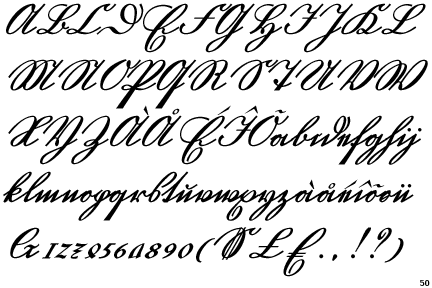 ABCDEFGHIJKL
MNOPQRSTUVW
XYZÀÅÉÎÕabcdefghij
klmnopqrstuvwxyzàåéîõøü
&1234567890($£€.,!?)
50